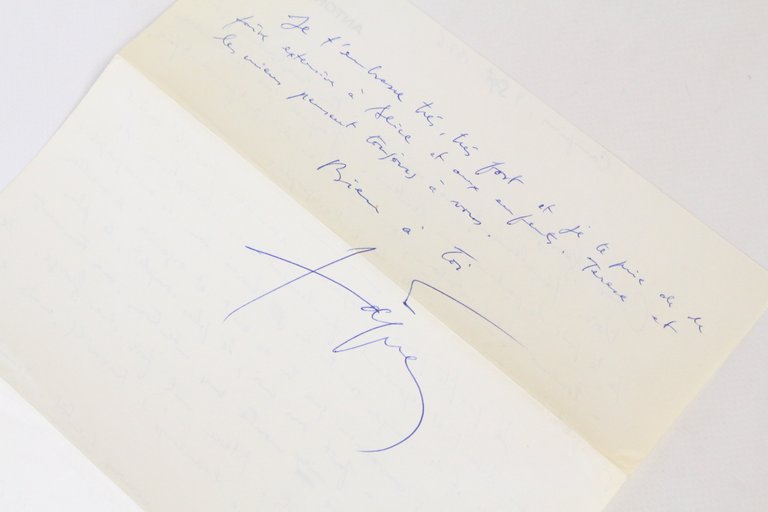 Je t'embrasse trés, trés fort et je te prie de le
faire extensive à Alice et aux enfants. Teresa et
les miens pensent toujours à vous.
Bien à Toi
Tàpies